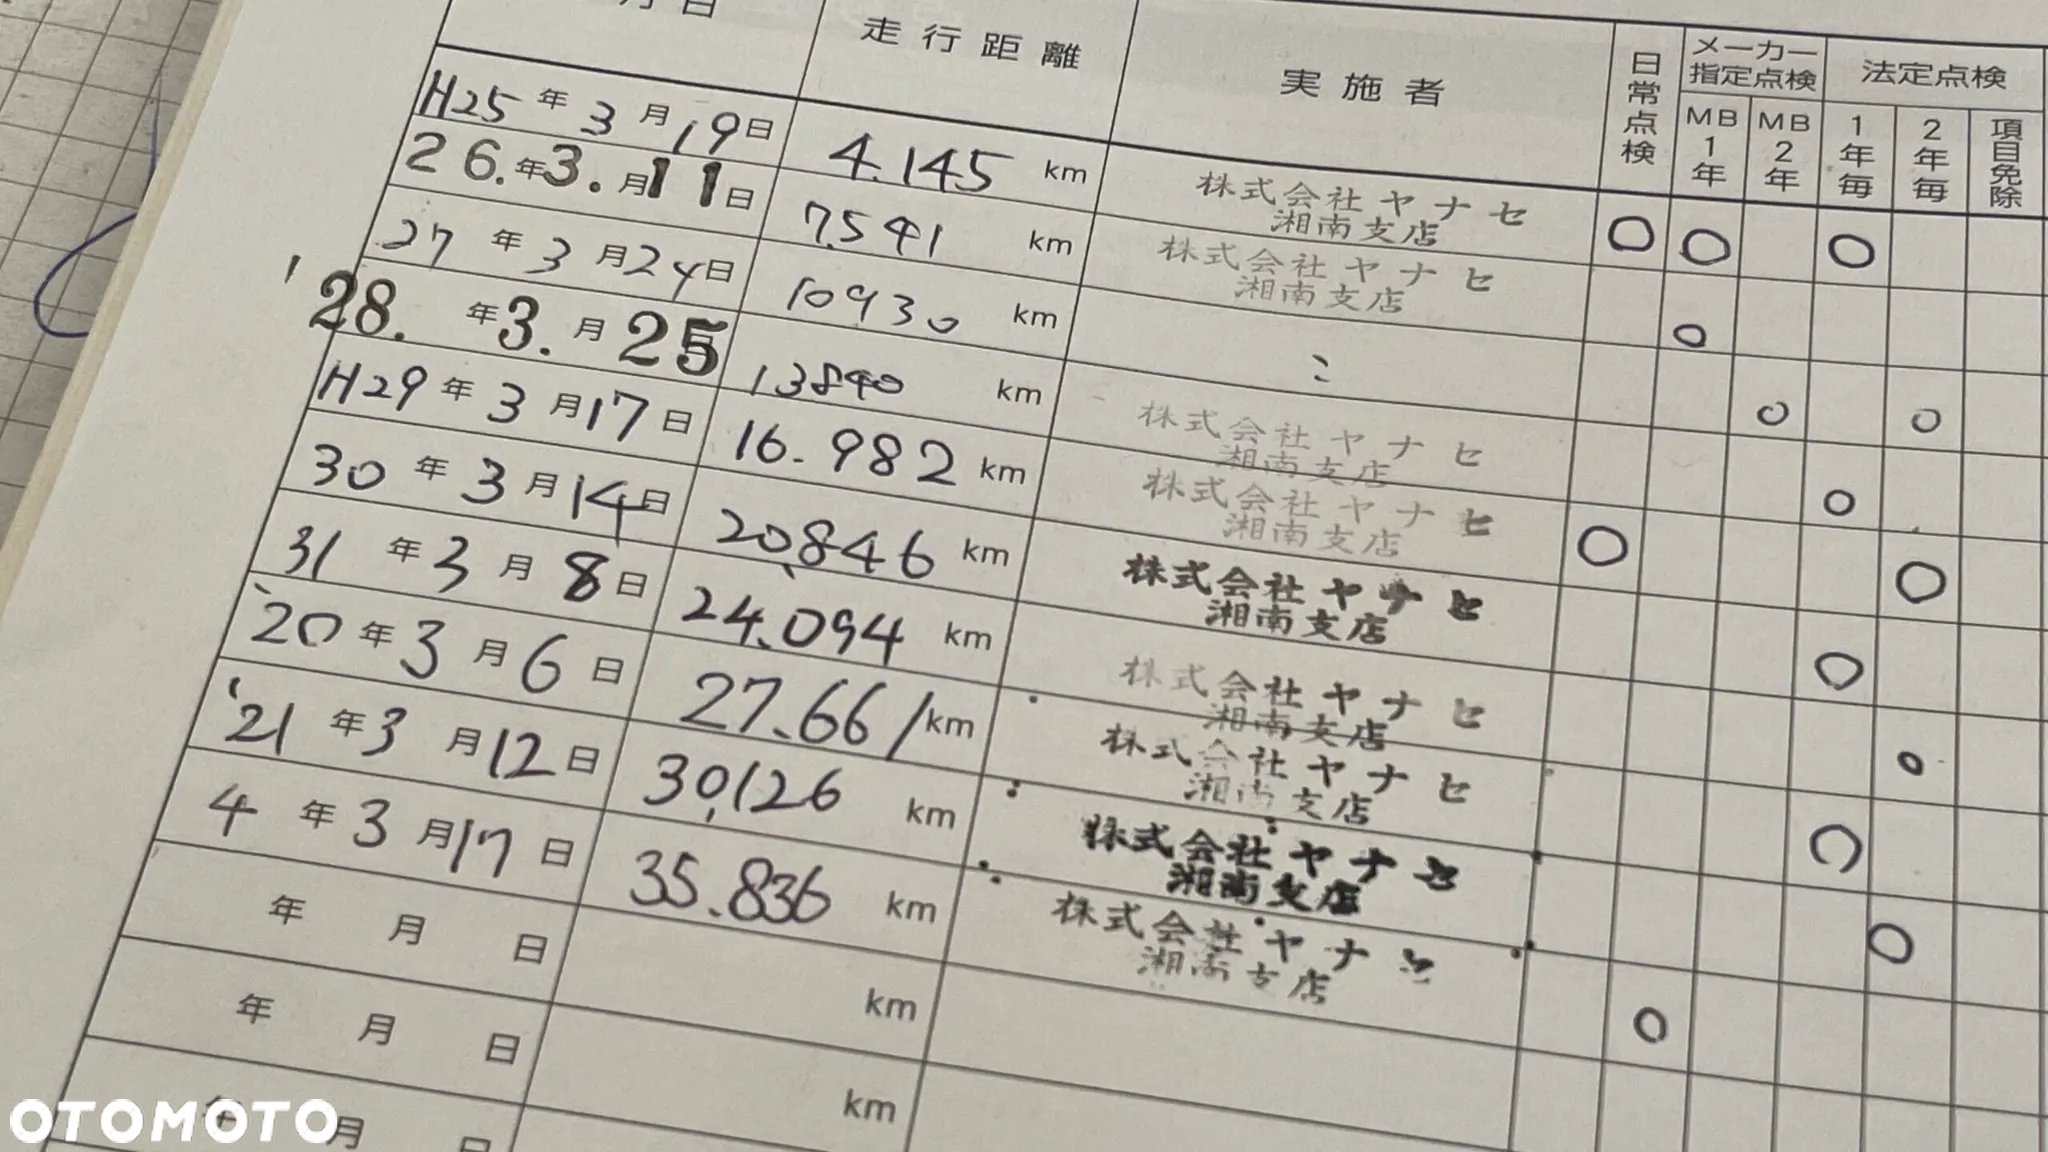 月日 走行距離 実施者 日常点検 メーカー指定点検 法定点検
MB1年 MB2年 1年毎 2年毎 項目免除
H25年3月19日 4.145 km 株式会社ヤナセ
湘南支店 ○ ○ ○
26.年3.月11日 7.541 km 株式会社ヤナセ
湘南支店 ○
27年3月24日 10930 km 〃 ○ ○
'28.年3.月25日 13840 km 株式会社ヤナセ
湘南支店 ○
H29年3月17日 16.982 km 株式会社ヤナセ
湘南支店 ○ ○
30年3月14日 20,846 km 株式会社ヤナセ
湘南支店 ○
31年3月8日 24.094 km 株式会社ヤナセ
湘南支店 ○
'20年3月6日 27.661 km 株式会社ヤナセ
湘南支店 ○
'21年3月12日 30,126 km 株式会社ヤナセ
湘南支店 ○
4年3月17日 35.836 km 株式会社ヤナセ
湘南支店 ○
年月日 km
年月日 km
年月日
OTOMOTO